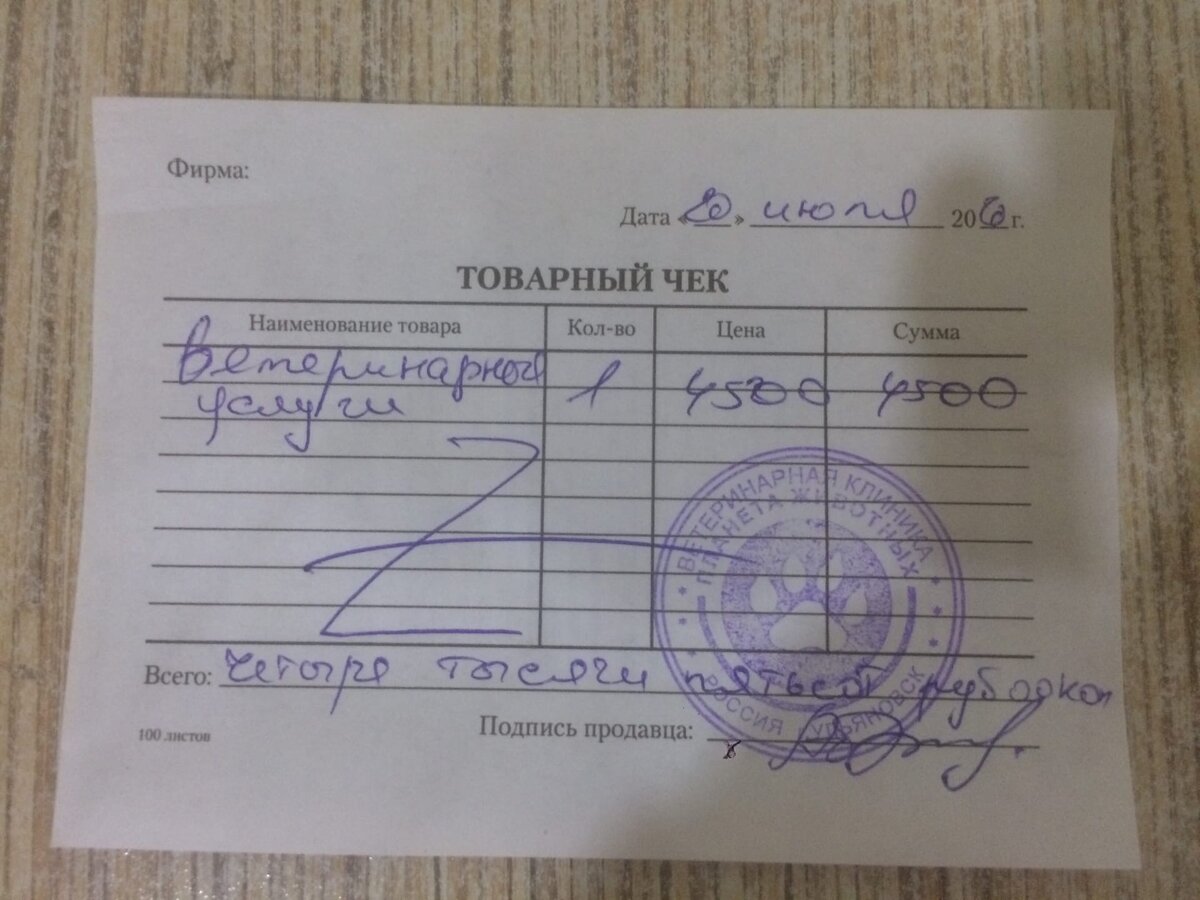 Фирма:
Дата «20» июля 20 г.
ТОВАРНЫЙ ЧЕК
Наименование товара Кол-во Цена Сумма
Ветеринарные 1 4500 4500
услуги
ВЕТЕРИНАРНАЯ КЛИНИКА
ПЛАНЕТА ЖИВОТНЫХ
РОССИЯ УЛЬЯНОВСК
Всего: Четыре тысячи пятьсот руб 00 коп
100 листов Подпись продавца: